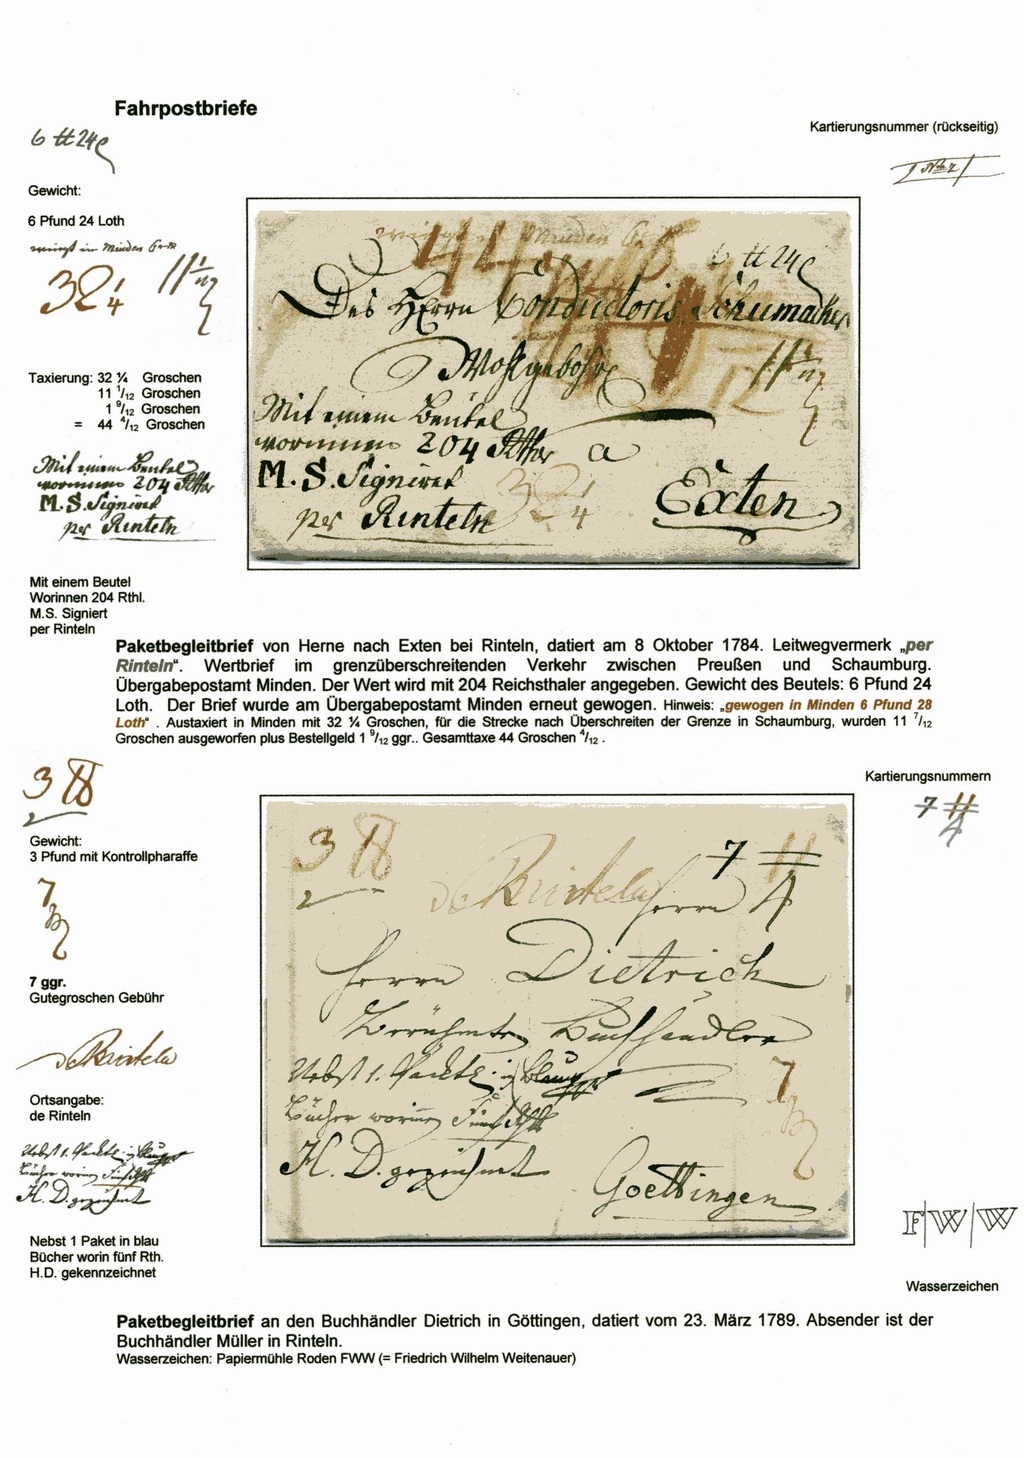 Fahrpostbriefe
Kartierungsnummer (rückseitig)
6 ℔ 24
Gewicht:
6 Pfund 24 Loth
32 ¼
Taxierung: 32 ¼ Groschen
11 1/12 Groschen
1 9/12 Groschen
= 44 4/12 Groschen
Mit einem Beutel
worinnen 204 Rthlr
M.S. Signiret
per Rinteln
6 ℔ 24
Des HErrn Conductoris Schumacher
Wohlgebohr
Mit einem Beutel
worinnen 204 Rthlr
M.S. Signiret
per Rinteln
a
Exten
32 ¼
Mit einem Beutel
Worinnen 204 Rthl.
M.S. Signiert
per Rinteln
Paketbegleitbrief von Herne nach Exten bei Rinteln, datiert am 8 Oktober 1784. Leitwegvermerk „per
Rinteln“. Wertbrief im grenzüberschreitenden Verkehr zwischen Preußen und Schaumburg.
Übergabepostamt Minden. Der Wert wird mit 204 Reichsthaler angegeben. Gewicht des Beutels: 6 Pfund 24
Loth. Der Brief wurde am Übergabepostamt Minden erneut gewogen. Hinweis: „gewogen in Minden 6 Pfund 28
Loth“ . Austaxiert in Minden mit 32 ¼ Groschen, für die Strecke nach Überschreiten der Grenze in Schaumburg, wurden 11 7/12
Groschen ausgeworfen plus Bestellgeld 1 9/12 ggr.. Gesamttaxe 44 Groschen 4/12 .
Kartierungsnummern
3 ℔
7 11
4
Gewicht:
3 Pfund mit Kontrollpharaffe
7
7 ggr.
Gutegroschen Gebühr
de Rinteln
Ortsangabe:
de Rinteln
Nebst 1. Packet in blau
Bücher worinn Fünf Rth
H. D. gezeichnet
3 ℔
7 11
4
de Rinteln
Herrn
Herrn Dietrich
Berühmter Buchhändler
Nebst 1. Packet in blau
Bücher worinn Fünf Rth
H. D. gezeichnet
7
Goettingen
Nebst 1 Paket in blau
Bücher worin fünf Rth.
H.D. gekennzeichnet
F W W
Wasserzeichen
Paketbegleitbrief an den Buchhändler Dietrich in Göttingen, datiert vom 23. März 1789. Absender ist der
Buchhändler Müller in Rinteln.
Wasserzeichen: Papiermühle Roden FWW (= Friedrich Wilhelm Weitenauer)